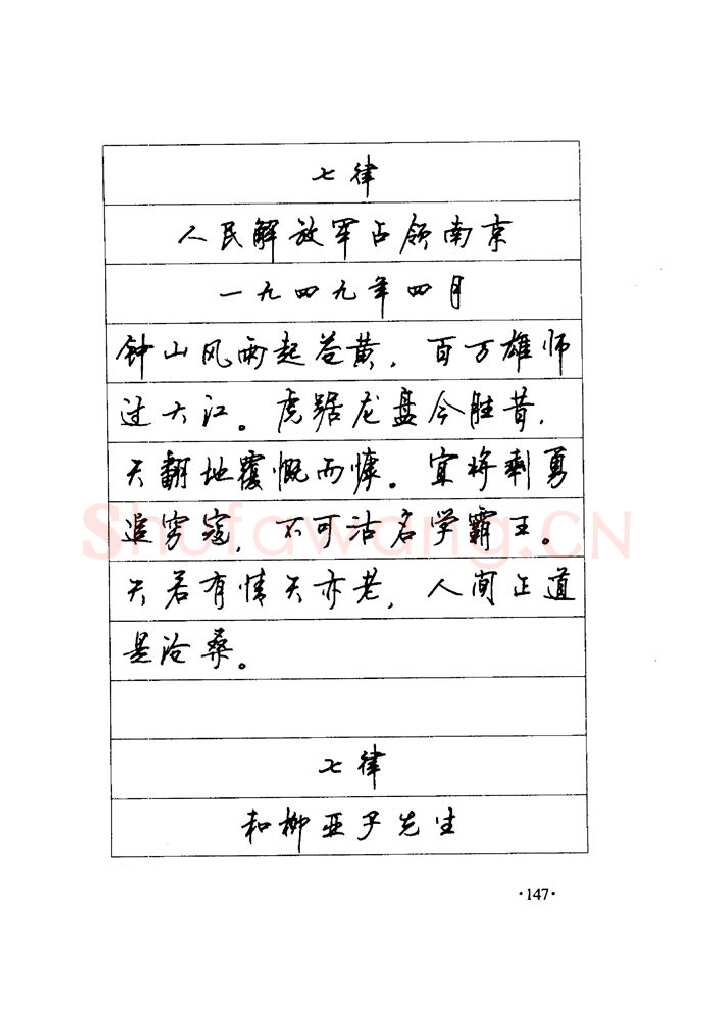 七律
人民解放军占领南京
一九四九年四月
钟山风雨起苍黄，百万雄师
过大江。虎踞龙盘今胜昔，
天翻地覆慨而慷。宜将剩勇
追穷寇，不可沽名学霸王。
天若有情天亦老，人间正道
是沧桑。
七律
和柳亚子先生
·147·
Shufawang.CN